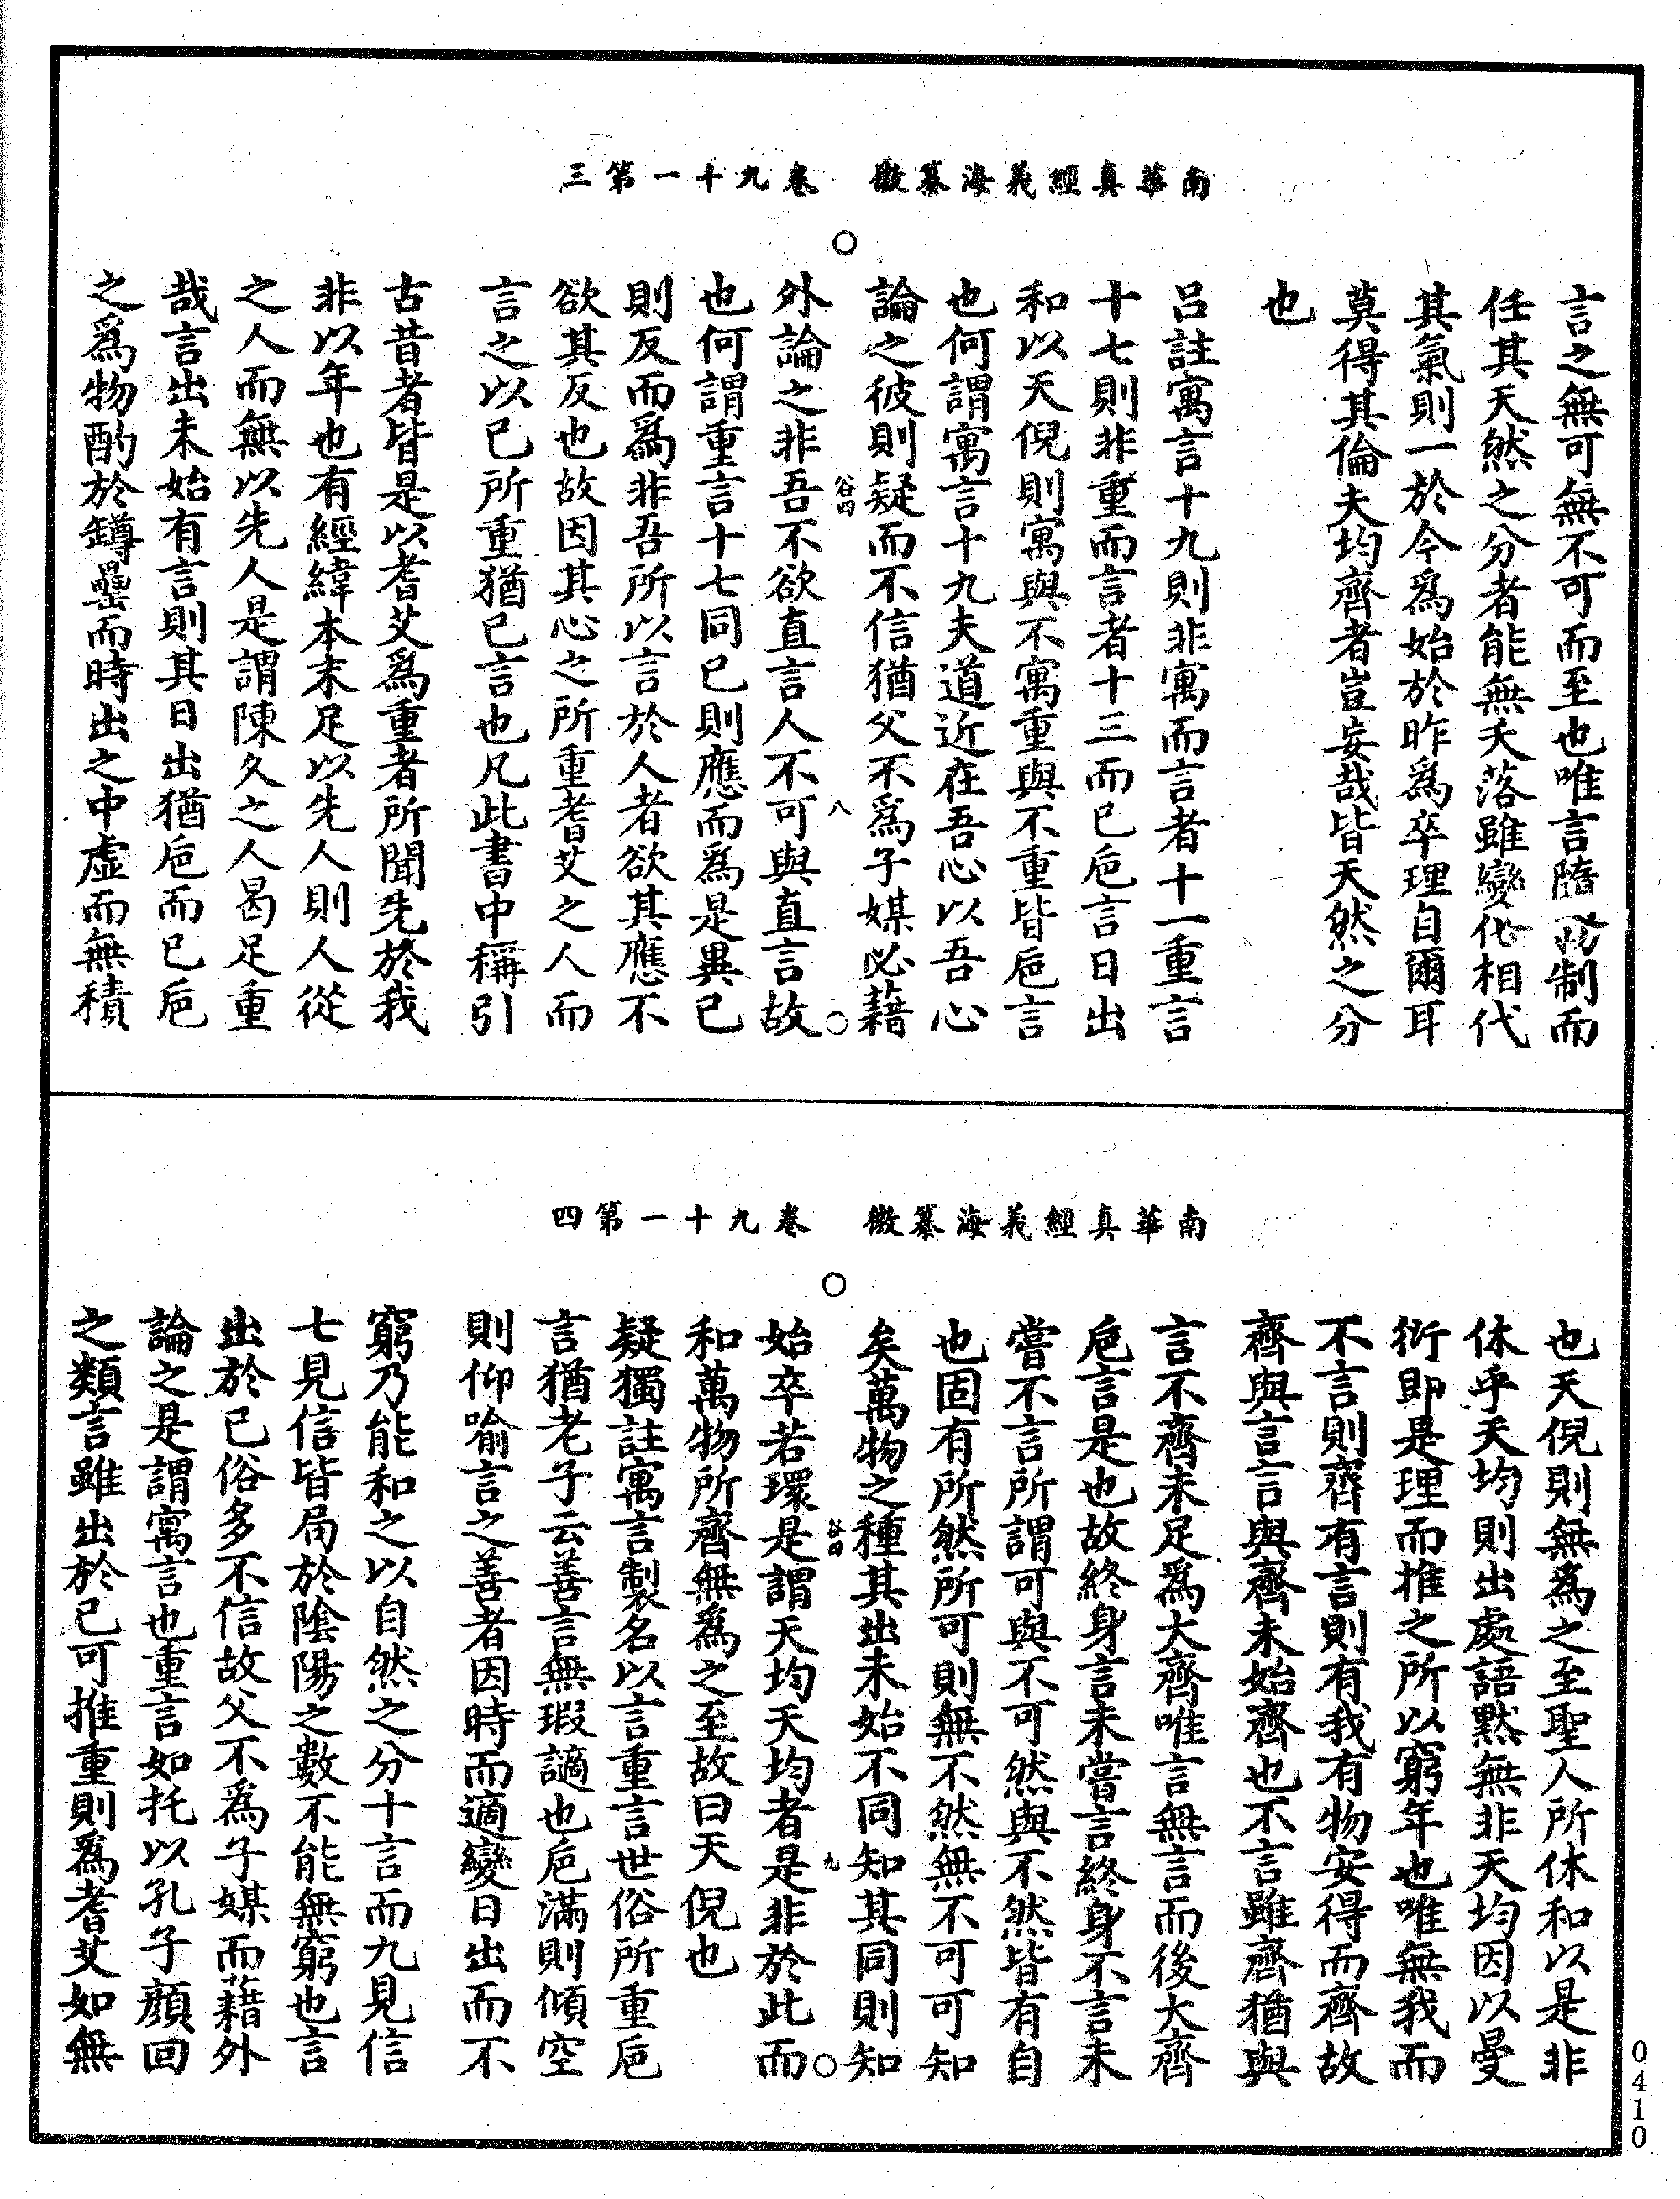 南華真經義海纂微　卷九十一第三
言之無可無不可而至也唯言隨制而
任其天然之分者能無夭落雖變化相代
其氣則一於今爲始於昨爲卒理自爾耳
莫得其倫夫均齊者豈妄哉皆天然之分
也
呂註寓言十九則非寓而言者十一重言
十七則非重而言者十三而已巵言日出
和以天倪則寓與不寓重與不重皆巵言
也何謂寓言十九夫道近在吾心以吾心
論之彼則疑而不信猶父不爲子媒必藉
谷四　八
外論之非吾不欲直言人不可與直言故
也何謂重言十七同已則應而爲是異已
則反而爲非吾所以言於人者欲其應不
欲其反也故因其心之所重耆艾之人而
言之以已所重猶已言也凡此書中稱引
古昔者皆是以耆艾爲重者所聞先於我
非以年也有經緯本末足以先人則人從
之人而無以先人是謂陳久之人曷足重
哉言出未始有言則其日出猶巵而已巵
之爲物酌於罇罍而時出之中虛而無積
南華真經義海纂微　卷九十一第四
也天倪則無爲之至聖人所休和以是非
休乎天均則出處語默無非天均因以曼
衍即是理而推之所以窮年也唯無我而
不言則齊有言則有我有物安得而齊故
齊與言言與齊未始齊也不言雖齊猶與
言不齊未足爲大齊唯言無言而後大齊
巵言是也故終身言未嘗言終身不言未
嘗不言所謂可與不可然與不然皆有自
也固有所然所可則無不然無不可可知
矣萬物之種其出未始不同知其同則知
谷四　九
始卒若環是謂天均天均者是非於此而
和萬物所齊無爲之至故曰天倪也
疑獨註寓言製名以言重言世俗所重巵
言猶老子云善言無瑕讁也巵滿則傾空
則仰喻言之善者因時而適變日出而不
窮乃能和之以自然之分十言而九見信
七見信皆局於陰陽之數不能無窮也言
出於已俗多不信故父不爲子媒而藉外
論之是謂寓言也重言如托以孔子顏回
之類言雖出於已可推重則爲耆艾如無
0410